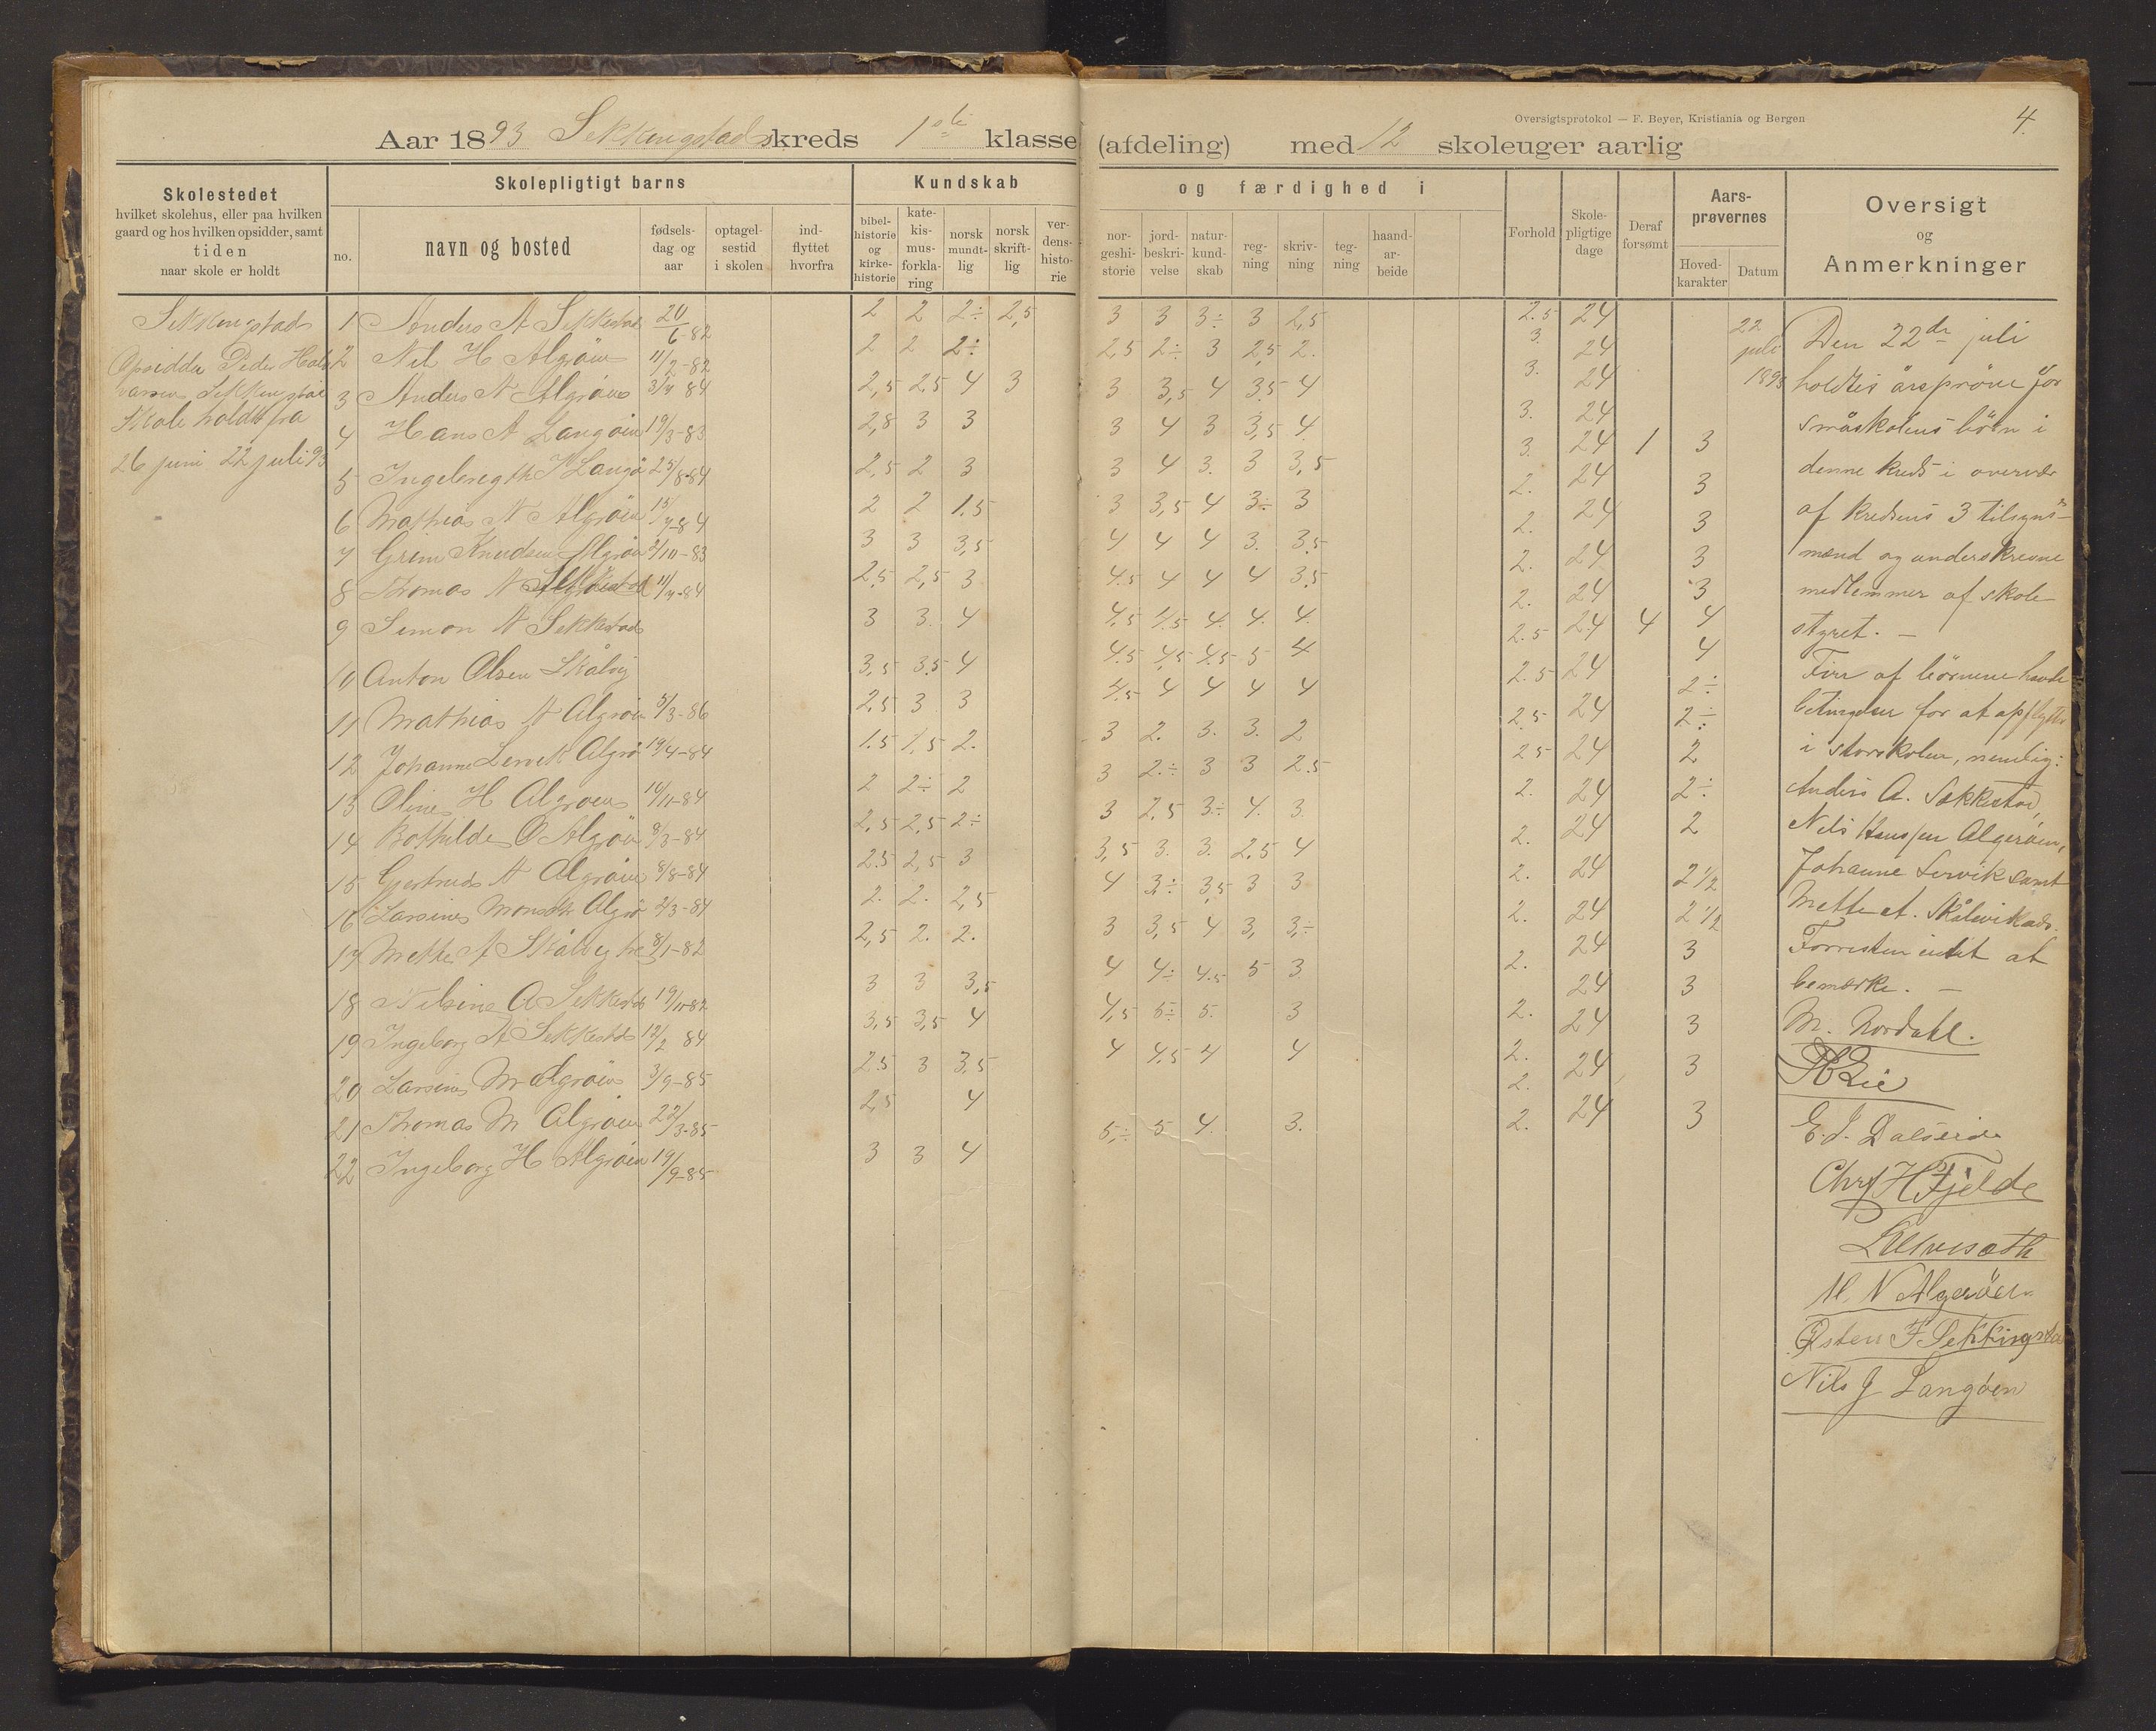 Oversigtsprotokol — F. Beyer, Kristiania og Bergen
4.
Aar 1893 Sekkingstads kreds 1ste klasse (afdeling) med 12 skoleuger aarlig
Skolestedet
hvilket skolehus, eller paa hvilken
gaard og hos hvilken opsidder, samt
tiden
naar skole er holdt
Skolepligtigt barns
no.
navn og bosted
fødsels-
dag og
aar
optagel-
sestid
i skolen
ind-
flyttet
hvorfra
Kundskab og færdighed i
bibel-
historie
og
kirke-
historie
kate-
kis-
mus-
forkla-
ring
norsk
mundt-
lig
norsk
skrift-
lig
ver-
dens-
histo-
rie
nor-
geshi-
storie
jord-
beskri-
velse
natur-
kund-
skab
reg-
ning
skriv-
ning
teg-
ning
haand-
ar-
beide
Forhold
Skole-
pligtige
dage
Deraf
forsømt
Aars-
prøvernes
Hoved-
karakter
Datum
Oversigt
og
Anmerkninger
Sekkingstad
Opsidder Peder Hal
Sekkingstad
Skole holdt fra
26 juni 22 juli 93
1 Anders A Sekkestad 20/6-82 2 2 2÷ 2,5 3 3 3÷ 3 2,5 2.5 24
2 Nil H Algröen 11/2-82 2 2 2÷ 2,5 2÷ 3 2,5 2. 3. 24
3 Anders N Algröen 3/4 84 2,5 2,5 4 3 3 3,5 4 3,5 4 3. 24
4 Hans A Langöen 19/3-83 2,8 3 3 3 4 3 3,5 4 3. 24
5 Ingebregth Langö 25/8-84 2,5 2 3 3 4 3. 3 3,5 3. 24 1 3
6 Mathias N Algröen 15/4-84 2 2 1.5 3 3,5 4 3÷ 3 2. 24 3
7 Grim Knudsen Algröe 2/10-83 3 3 3,5 4 4 4 3. 3,5 2. 24 3
8 Thomas N 11/4-84 2,5 2,5 3 4.5 4 4 4 3,5 2. 24 3
9 Simon N Sekkestad 3 3. 4 4,5 4.5 4. 4. 4. 2. 24 3
10 Anton Olsen Skålvig 3,5 3.5 4 4.5 4,5 4.5 5 4 2.5 24 4 4
11 Mathias N Algröen 5/3-86 2,5 3 3 4.5 4 4 4 4 2.5 24 4
12 Johanne Lervik Algrö 19/4-84 1.5 1.5 2. 3 2. 3. 3. 2 2.5 24 2÷
13 Oline H Algröen 10/11-84 2 2÷ 2 3 2÷ 3 3 2.5 2.5 24 2÷
14 Bothilde O Algröe 8/3-84 2,5 2,5 2÷ 3 2,5 3÷ 4. 3. 2. 24 2
15 Gjertrud N Algröen 8/8-84 2.5 2,5 3 3,5 3. 3. 2,5 4 2. 24 2÷
16 Larsine Monsdtr Algrö 2/3-84 2. 2. 2,5 4 3÷ 3,5 3 3 2. 24 2
17 Mette A Skålvig 8/1-82 2,5 2. 2. 3 3,5 4 3, 3÷ 2. 24 2 1/2
18 Nilsine A Sekkestd 19/11-82 3 3 3,5 4 4÷ 4.5 5 3. 2. 24 2 1/2
19 Ingeborg A Sekkestd 12/2 84 3,5 3,5 4 4,5 5÷ 5. 3 2. 24 3
20 Larsine M Algröen 3/9-85 2.5 3 3,5 4 4.5 4 4 2. 24 3
21 Thomas M Algröen 22/3-85 2,5 4 2. 24 3
22 Ingeborg H Algröen 19/9-85 3 3 4 5÷ 5 4. 3. 2. 24 3
22
juli
1893
Den 22de juli
holdtes årspröve for
småskolens börn i
denne kreds i overvær
af kredsens 3 tilsyns-
mænd og underskrevne
medlemmer af skole-
styret. —
Fire af börnene havde
betingelser for at opflyttes
i storskolen, nemlig:
Anders A. Sækkestad,
Nils Hanssen Algeröen,
Johanne Lervik samt
Mette A. Skålevik
Forresten intet at
bemærke. —
M. Nordahl.
E. J. Dalseide
Chr H Fjelde
M. N Algeröen
Østen F Sekkingsta
Nils J Langöen